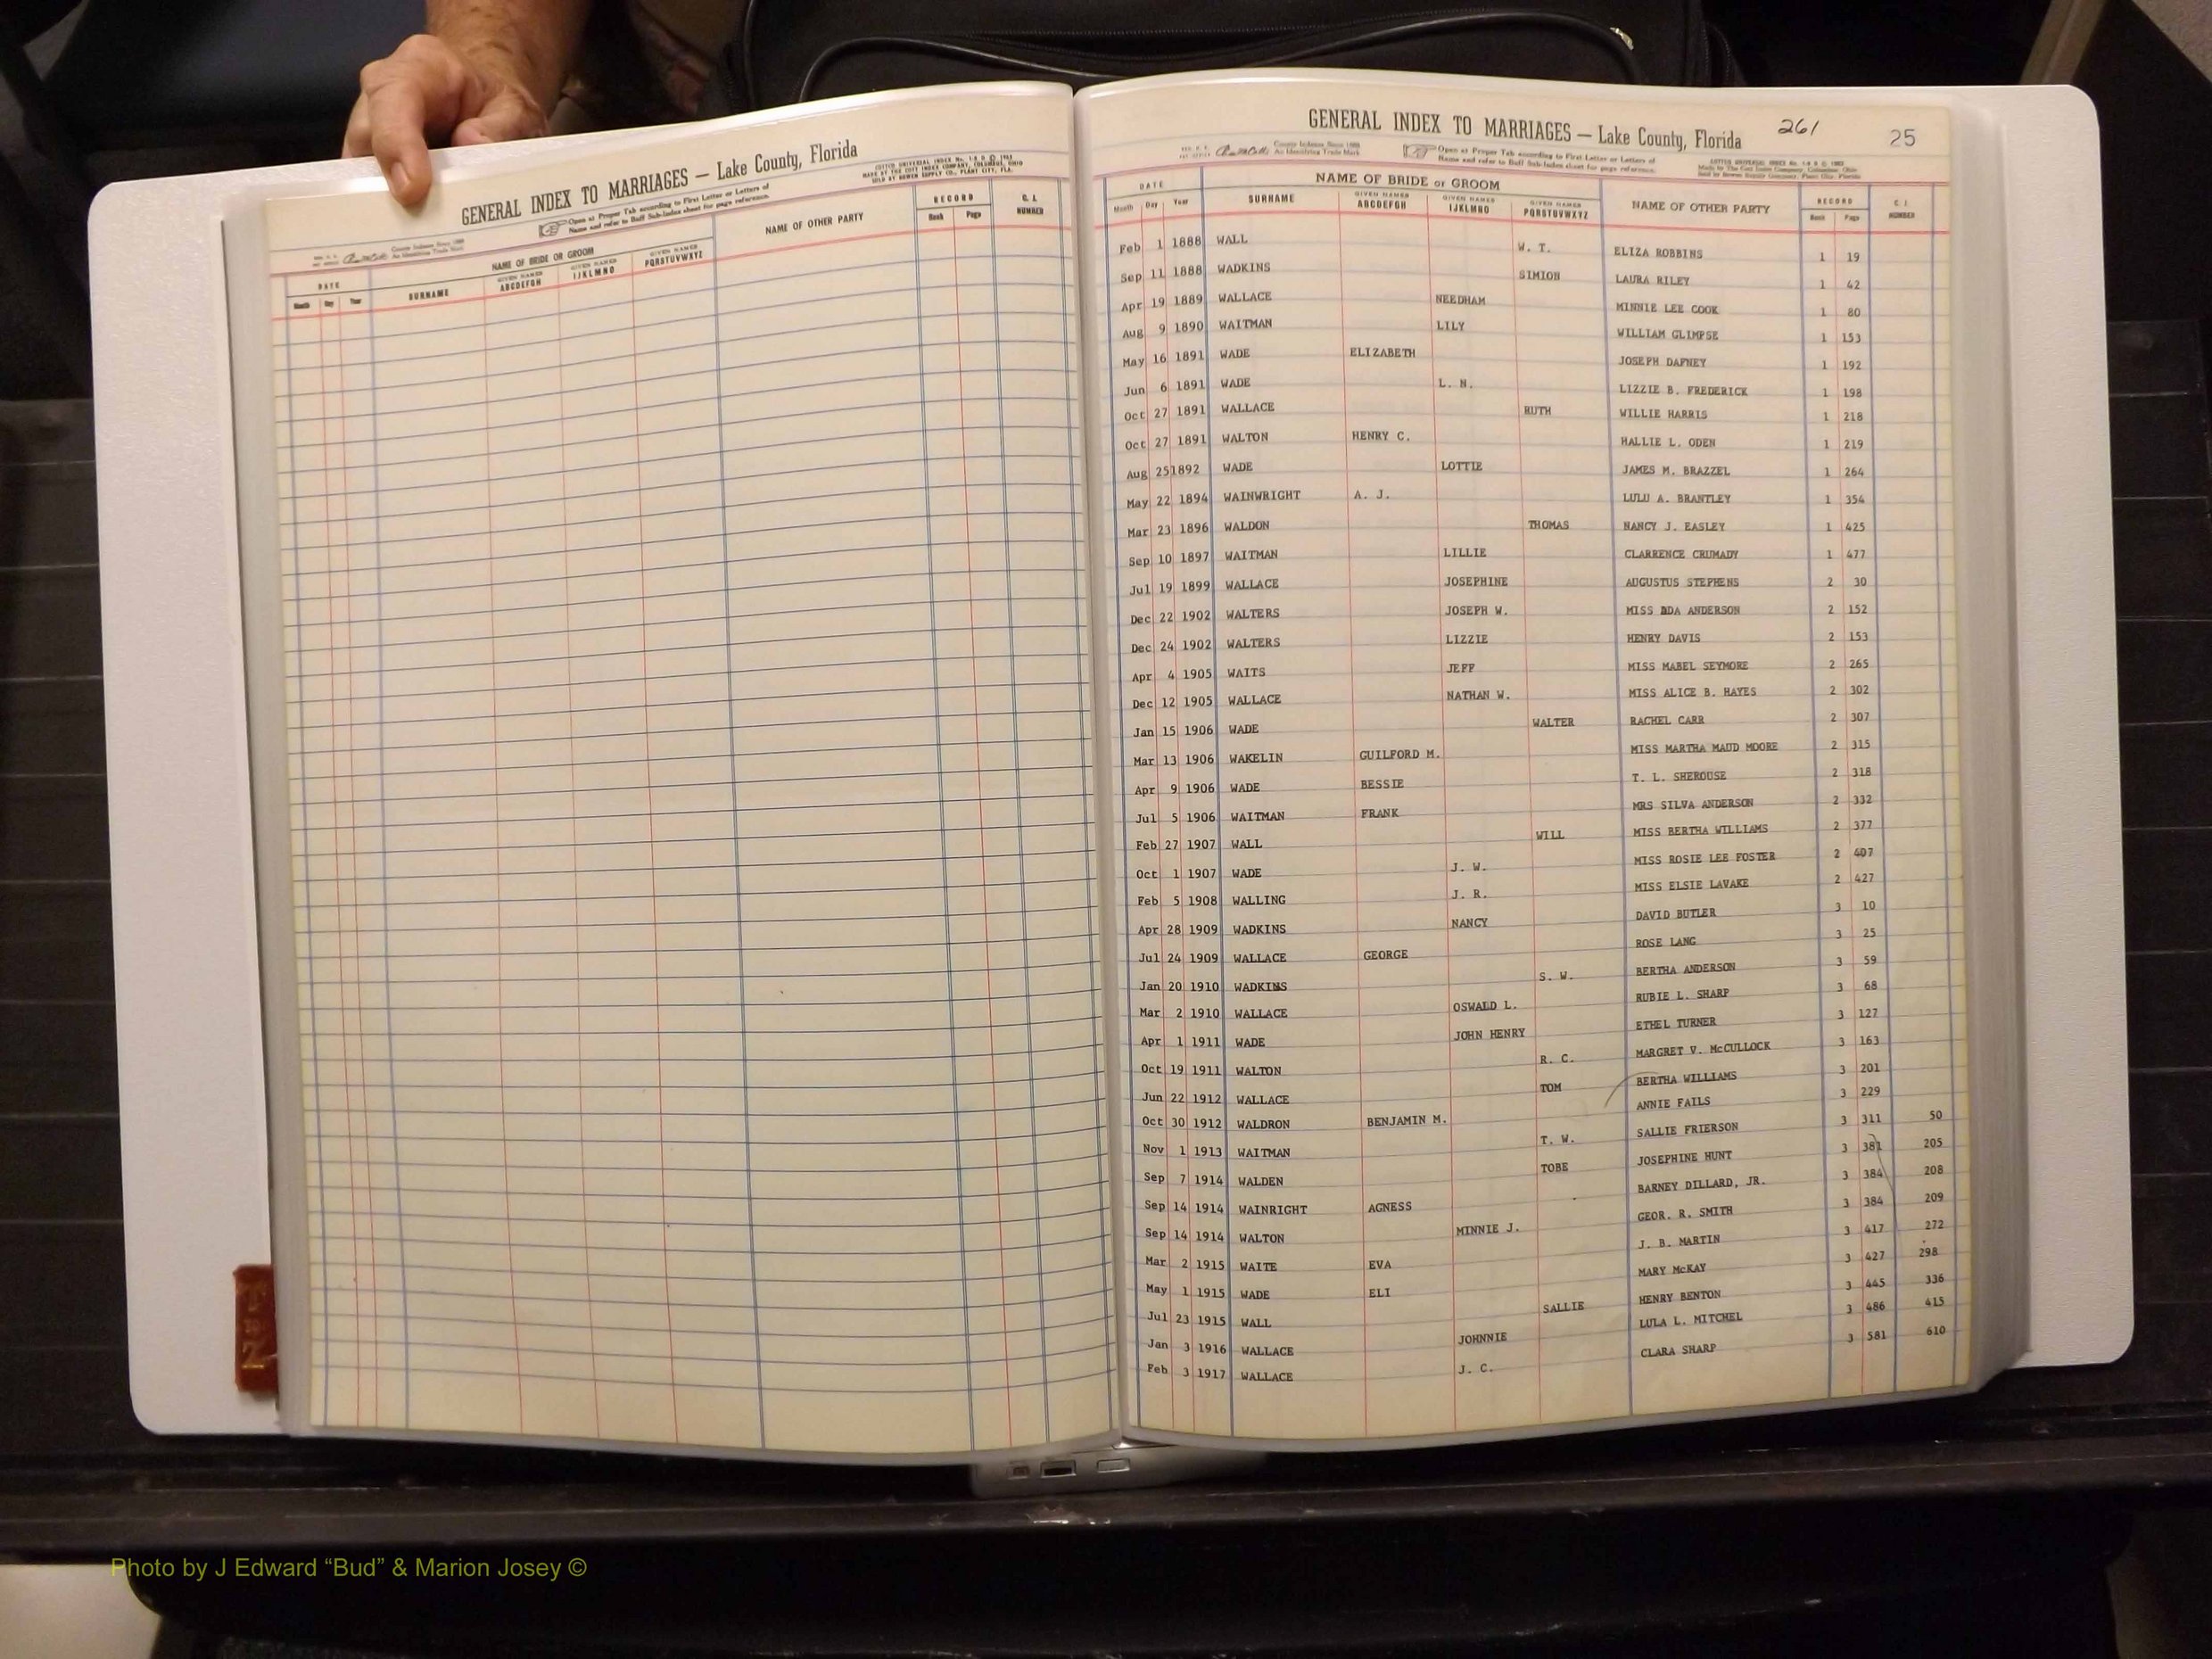 GENERAL INDEX TO MARRIAGES — Lake County, Florida
Open at Proper Tab according to First Letter or Letters of
Name and refer to Buff Sub-Index sheet for page reference.
County Indexes Since 1888
An Identifying Trade Mark
DATE NAME OF BRIDE OR GROOM NAME OF OTHER PARTY RECORD C. I. NUMBER
Month Day Year SURNAME GIVEN NAMES ABCDEFGH GIVEN NAMES IJKLMNO GIVEN NAMES PQRSTUVWXYZ Book Page
GENERAL INDEX TO MARRIAGES — Lake County, Florida 261 25
County Indexes Since 1888
An Identifying Trade Mark
Open at Proper Tab according to First Letter or Letters of
Name and refer to Buff Sub-Index sheet for page reference.
DATE NAME OF BRIDE or GROOM NAME OF OTHER PARTY RECORD C. I. NUMBER
Month Day Year SURNAME GIVEN NAMES ABCDEFGH GIVEN NAMES IJKLMNO GIVEN NAMES PQRSTUVWXYZ Book Page
Feb 1 1888 WALL W. T. ELIZA ROBBINS 1 19
Sep 11 1888 WADKINS SIMION LAURA RILEY 1 42
Apr 19 1889 WALLACE NEEDHAM MINNIE LEE COOK 1 80
Aug 9 1890 WAITMAN LILY WILLIAM GLIMPSE 1 153
May 16 1891 WADE ELIZABETH JOSEPH DAFNEY 1 192
Jun 6 1891 WADE L. N. LIZZIE B. FREDERICK 1 198
Oct 27 1891 WALLACE RUTH WILLIE HARRIS 1 218
Oct 27 1891 WALTON HENRY C. HALLIE L. ODEN 1 219
Aug 25 1892 WADE LOTTIE JAMES M. BRAZZEL 1 264
May 22 1894 WAINWRIGHT A. J. LULU A. BRANTLEY 1 354
Mar 23 1896 WALDON THOMAS NANCY J. EASLEY 1 425
Sep 10 1897 WAITMAN LILLIE CLARRENCE CRUMADY 1 477
Jul 19 1899 WALLACE JOSEPHINE AUGUSTUS STEPHENS 2 30
Dec 22 1902 WALTERS JOSEPH W. MISS ANDERSON 2 152
Dec 24 1902 WALTERS LIZZIE HENRY DAVIS 2 153
Apr 4 1905 WAITS JEFF MISS MABEL SEYMORE 2 265
Dec 12 1905 WALLACE NATHAN W. MISS ALICE B. HAYES 2 302
Jan 15 1906 WADE WALTER RACHEL CARR 2 307
Mar 13 1906 WAKELIN GUILFORD M. MISS MARTHA MAUD MOORE 2 315
Apr 9 1906 WADE BESSIE T. L. SHEROUSE 2 318
Jul 5 1906 WAITMAN FRANK MRS SILVA ANDERSON 2 332
Feb 27 1907 WALL WILL MISS BERTHA WILLIAMS 2 377
Oct 1 1907 WADE J. W. MISS ROSIE LEE FOSTER 2 407
Feb 5 1908 WALLING J. R. MISS ELSIE LAVAKE 2 427
Apr 28 1909 WADKINS NANCY DAVID BUTLER 3 10
Jul 24 1909 WALLACE GEORGE ROSE LANG 3 25
Jan 20 1910 WADKINS S. W. BERTHA ANDERSON 3 59
Mar 2 1910 WALLACE OSWALD L. RUBIE L. SHARP 3 68
Apr 1 1911 WADE JOHN HENRY ETHEL TURNER 3 127
Oct 19 1911 WALTON R. C. MARGRET V. McCULLOCK 3 163
Jun 22 1912 WALLACE TOM BERTHA WILLIAMS 3 201
Oct 30 1912 WALDRON BENJAMIN M. ANNIE FAILS 3 229
Nov 1 1913 WAITMAN T. W. SALLIE FRIERSON 3 311 50
Sep 7 1914 WALDEN TOBE JOSEPHINE HUNT 3 381 205
Sep 14 1914 WAINRIGHT AGNESS BARNEY DILLARD, JR. 3 384 208
Sep 14 1914 WALTON MINNIE J. GEOR. R. SMITH 3 384 209
Mar 2 1915 WAITE EVA J. B. MARTIN 3 417 272
May 1 1915 WADE ELI MARY McKAY 3 427 298
Jul 23 1915 WALL SALLIE HENRY BENTON 3 445 336
Jan 3 1916 WALLACE JOHNNIE LULA L. MITCHEL 3 486 415
Feb 3 1917 WALLACE J. C. CLARA SHARP 3 581 610
Photo by J Edward “Bud” & Marion Josey ©